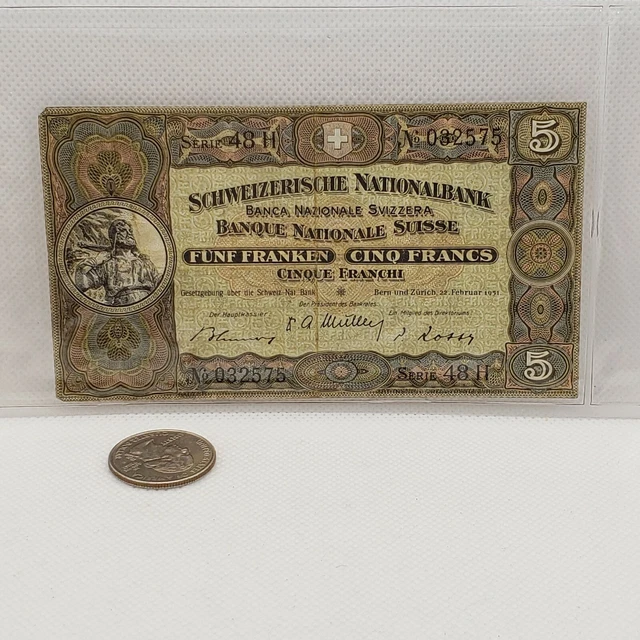 SERIE 48 H
№ 032575
5
SCHWEIZERISCHE NATIONALBANK
BANCA NAZIONALE SVIZZERA
BANQUE NATIONALE SUISSE
FÜNF FRANKEN CINQ FRANCS
CINQUE FRANCHI
Gesetzgebung über die Schweiz. Nat. Bank
Bern und Zürich, 22. Februar 1951
Der Präsident des Bankrates.
Der Hauptkassier.
Ein Mitglied des Direktoriums
№ 032575
SERIE 48 H
5